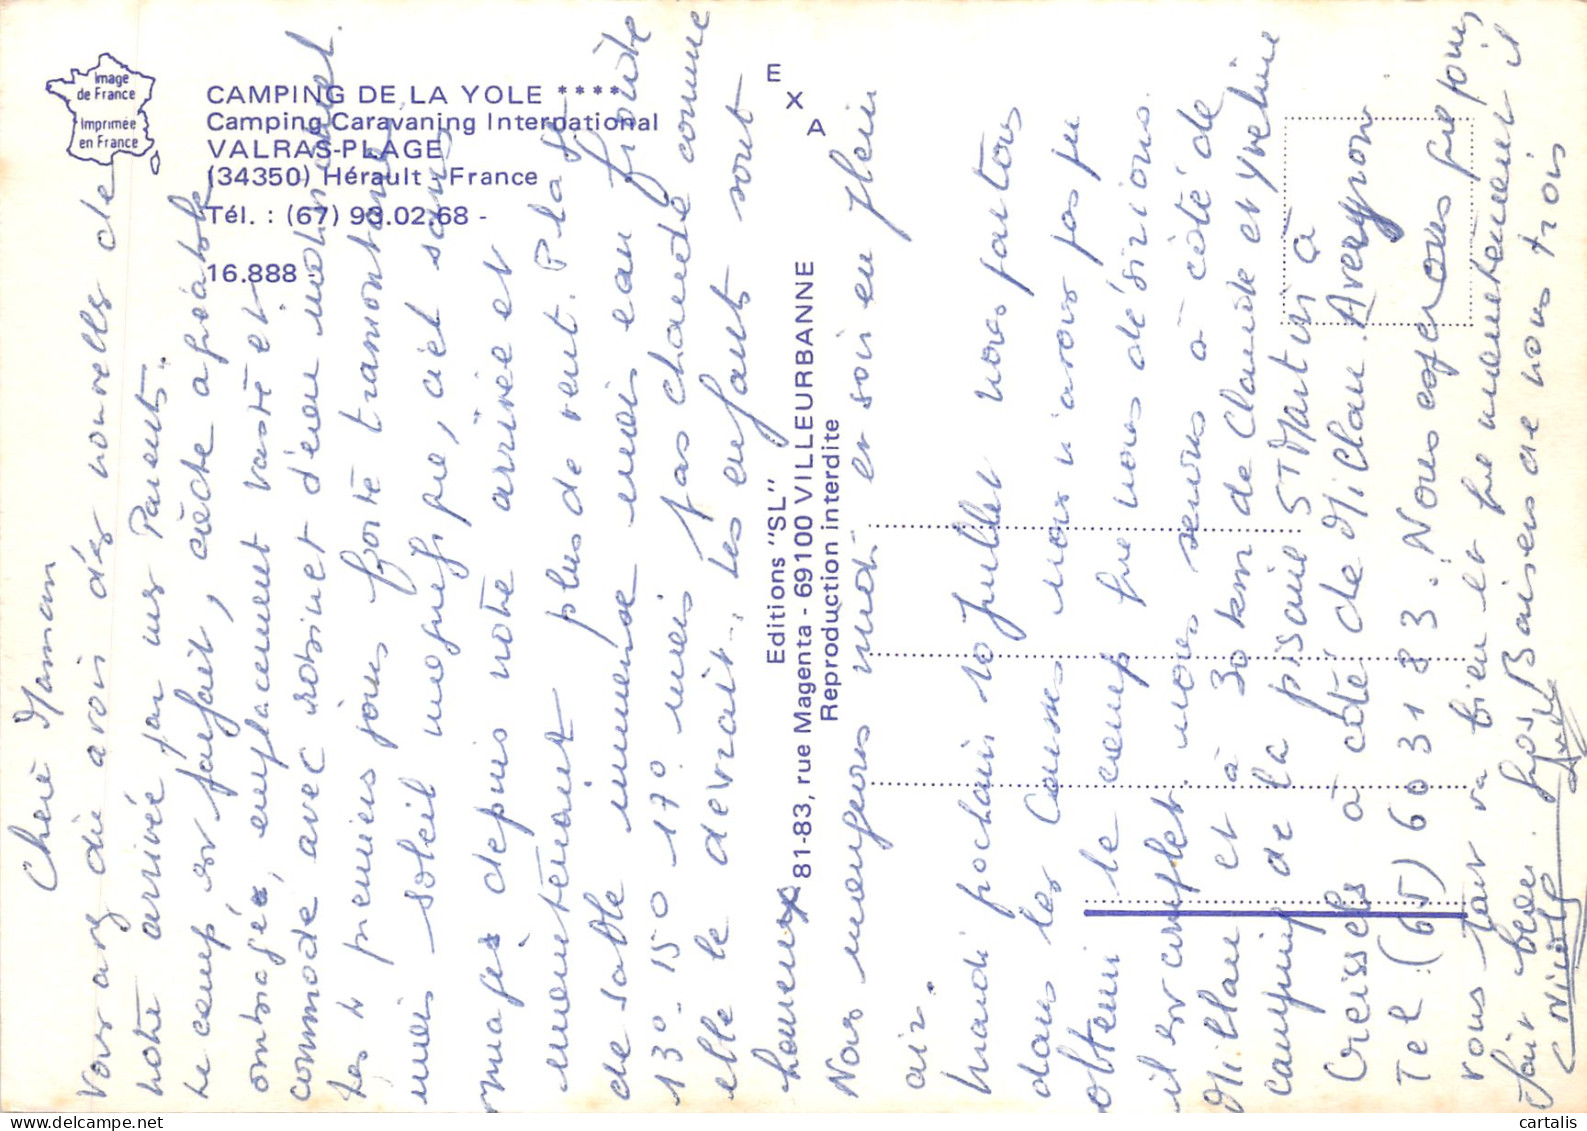 Image
de France
Imprimée
en France
CAMPING DE LA YOLE ****
Camping Caravaning International
VALRAS-PLAGE
(34350) Hérault - France
Tél. : (67) 90.02.68 -
16.888 -
E
X
A
Editions "SL"
81-83, rue Magenta - 69100 VILLEURBANNE
Reproduction interdite
Chere Maman
Vous avez du avoir des nouvelles de
notre arrivée par mes Parents.
Le camp est parfait, crèche agréable
ombragée, emplacement vaste et
commode, avec robinet d'eau
Les 4 premiers jours forte tramontane,
mais soleil magnifique, ciel sans
nuages depuis notre arrivée et
maintenant plus de vent. Plage
de sable immense mais eau froide
13°-150 17° mais pas chaude comme
elle le devrait. Les enfants sont
heureux
Nous mangeons midi et soir en plein
air.
Mardi prochain 10 juillet nous partons
dans les Causses nous n'avons pas pu
obtenir le camp que nous désirions.
il est complet. nous serons à côté de
Millau et à 30 km de Claude et Yveline
camping de la piscine St Martin à
Creissels à côté de Millau. Aveyron
Tel : (65) 60 31 83. Nous espérons que pour
vous tout va bien et que maintenant il
fait beau. Gros Baisers de nous trois
Nicole
André
cartalis